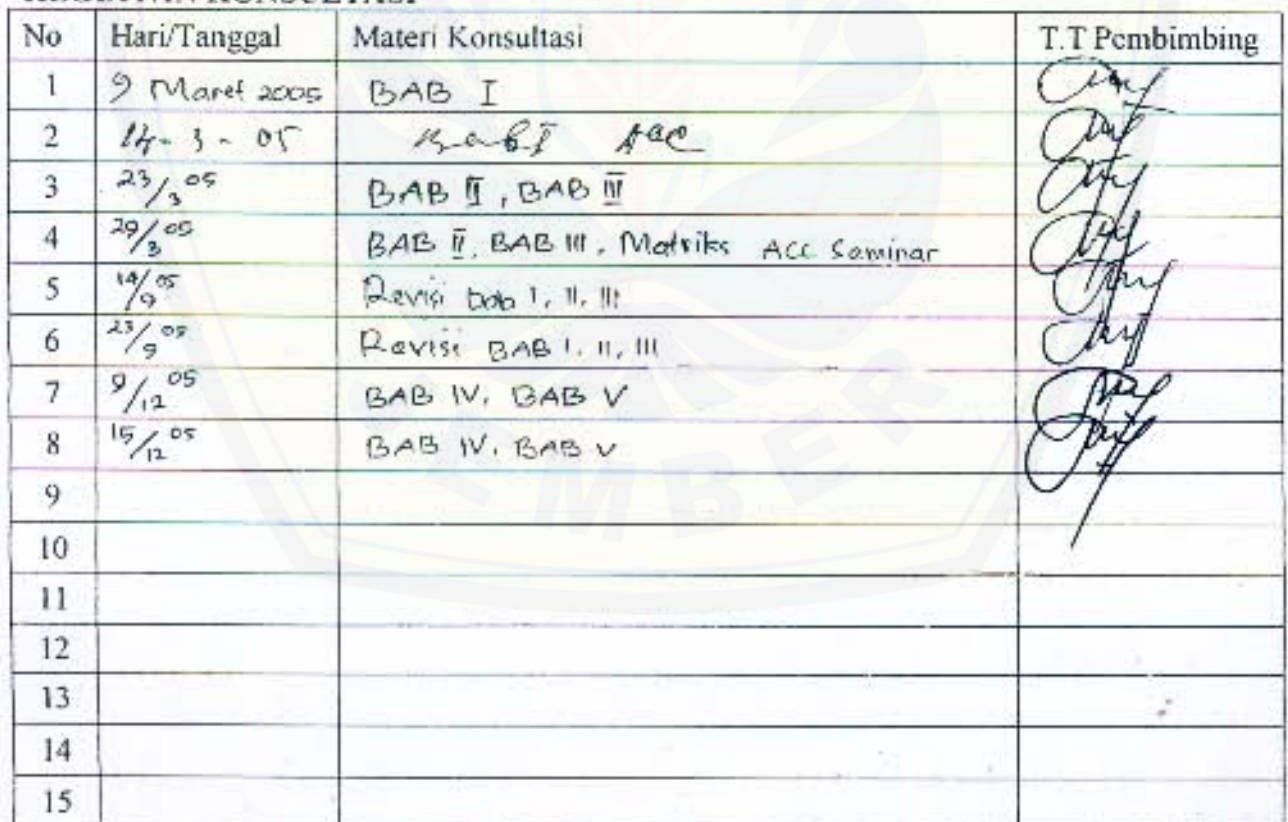 KONSULTASI
No Hari/Tanggal Materi Konsultasi T.T Pembimbing
1 9 Maret 2005 BAB I
2 14-3-05 Bab I ACC
3 23/3 05 BAB II, BAB III
4 29/3 05 BAB II, BAB III, Matriks ACC Seminar
5 14/9 05 Revisi bab I, II, III
6 23/9 05 Revisi BAB I, II, III
7 9/12 05 BAB IV, BAB V
8 15/12 05 BAB IV, BAB V
9
10
11
12
13
14
15
EMBER